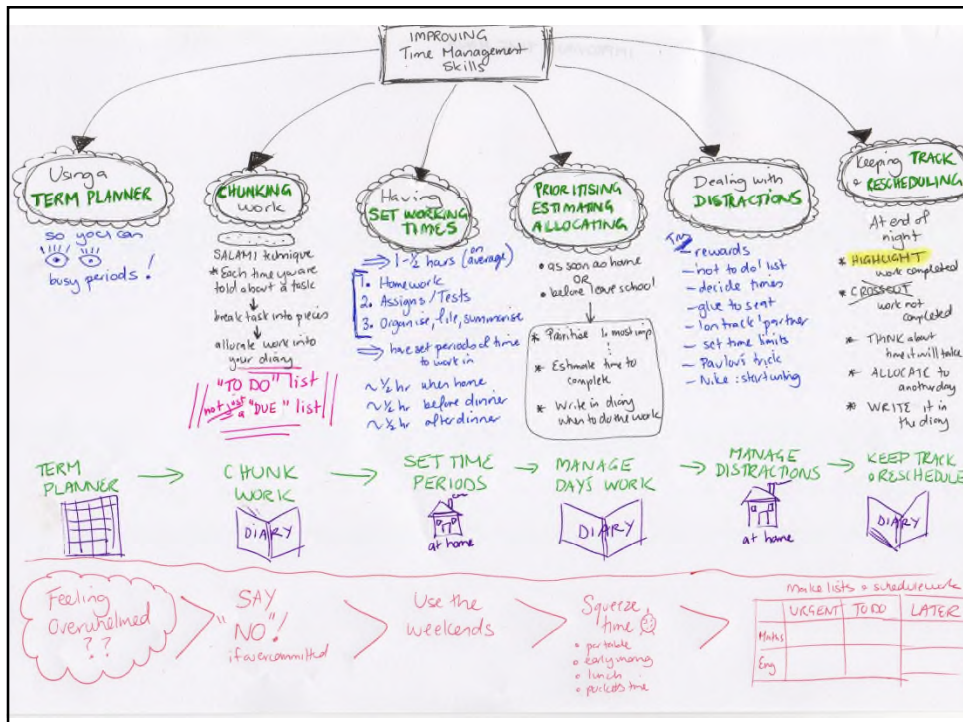 IMPROVING
Time Management
Skills
Using a
TERM PLANNER
so you can
busy periods!
CHUNKING
work
SALAMI technique
* Each time you are
told about a task
break task into pieces
allocate work into
your diary
"TO DO" list
not just a "DUE" list
Having
SET WORKING
TIMES
⇒ 1-1½ hours (on average)
1. Homework
2. Assigns/Tests
3. Organise, file, summarise
⇒ have set periods of time
to work in
~ ½ hr when home
~ ½ hr before dinner
~ ½ hr after dinner
PRIORITISING
ESTIMATING
ALLOCATING
• as soon as home
OR
• before leave school
* Prioritise 1. most imp
* Estimate time to
complete
* Write in diary
when to do the work
Dealing with
DISTRACTIONS
- rewards
- not to do list
- decide times
- glue to seat
- 'on track' partner
- set time limits
- Pavlov's trick
- Nike: start writing
Keeping TRACK
& RESCHEDULING
At end of
night
* HIGHLIGHT
work completed
* CROSSOUT
work not
completed
* THINK about
time it will take
* ALLOCATE to
another day
* WRITE it in
the diary
TERM
PLANNER
CHUNK
WORK
DIARY
SET TIME
PERIODS
at home
MANAGE
DAY'S WORK
DIARY
MANAGE
DISTRACTIONS
at home
KEEP TRACK
& RESCHEDULE
DIARY
Feeling
Overwhelmed
? ?
SAY
"NO"!
if overcommitted
Use the
weekends
Squeeze
time
• portable
• early morng
• lunch
• pockets time
Make lists & schedule work
URGENT TO DO LATER
Maths
Eng